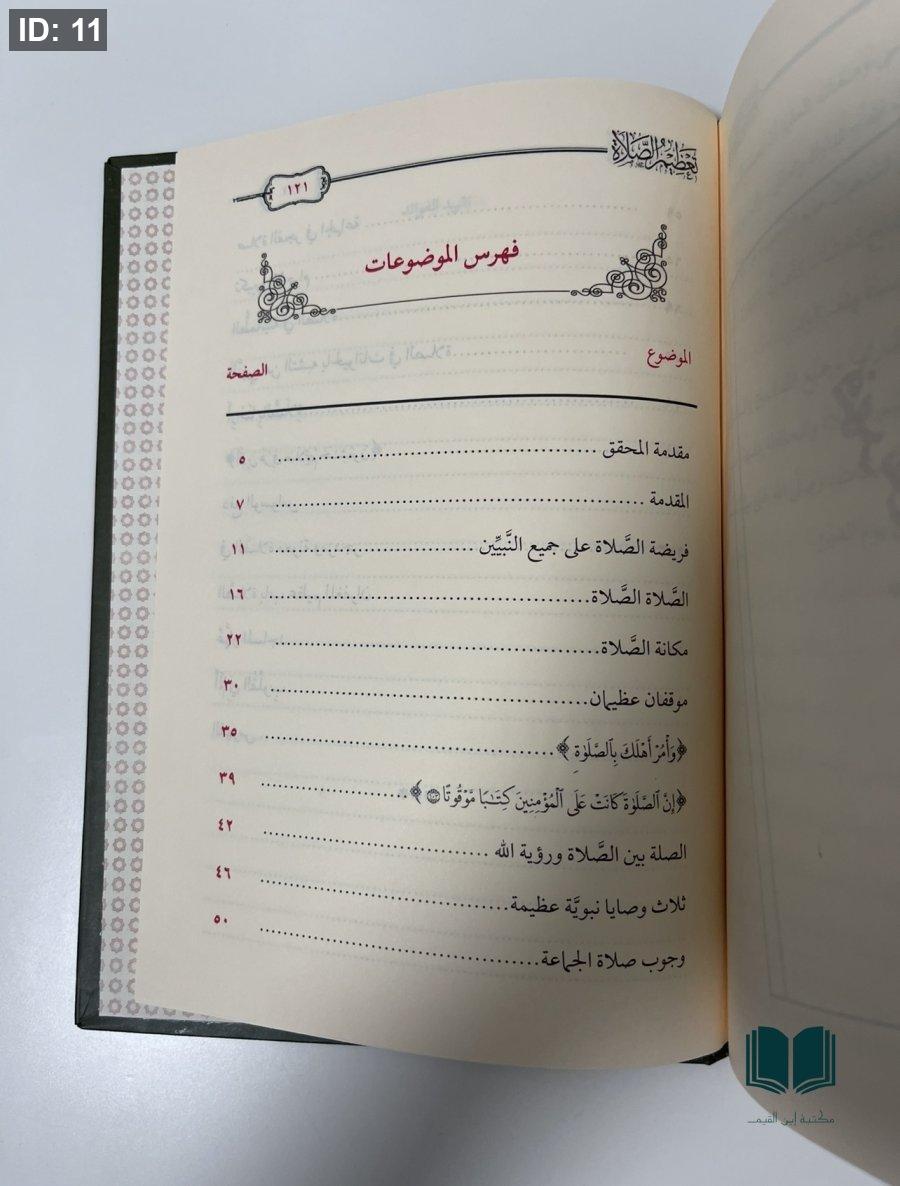 ID: 11
تعظيم الصلاة
١٢١
فهرس الموضوعات
الموضوع الصفحة
مقدمة المحقق ٥
المقدمة ٧
فريضة الصَّلاة على جميع النَّبيِّين ١١
الصَّلاة الصَّلاة ١٦
مكانة الصَّلاة ٢٢
موقفان عظيمان ٣٠
﴿وَأْمُرْ أَهْلَكَ بِٱلصَّلَوٰةِ﴾ ٣٥
﴿إِنَّ ٱلصَّلَوٰةَ كَانَتْ عَلَى ٱلْمُؤْمِنِينَ كِتَـٰبًا مَّوْقُوتًا﴾ ٣٩
الصلة بين الصَّلاة ورؤية الله ٤٢
ثلاث وصايا نبويَّة عظيمة ٤٦
وجوب صلاة الجماعة ٥٠
مكتبة إبن القيم